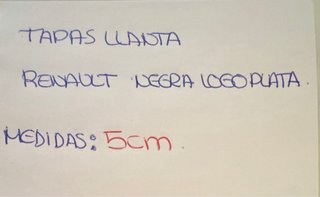 TAPAS LLANTA
RENAULT NEGRA LOGO PLATA.
MEDIDAS: 5cm.